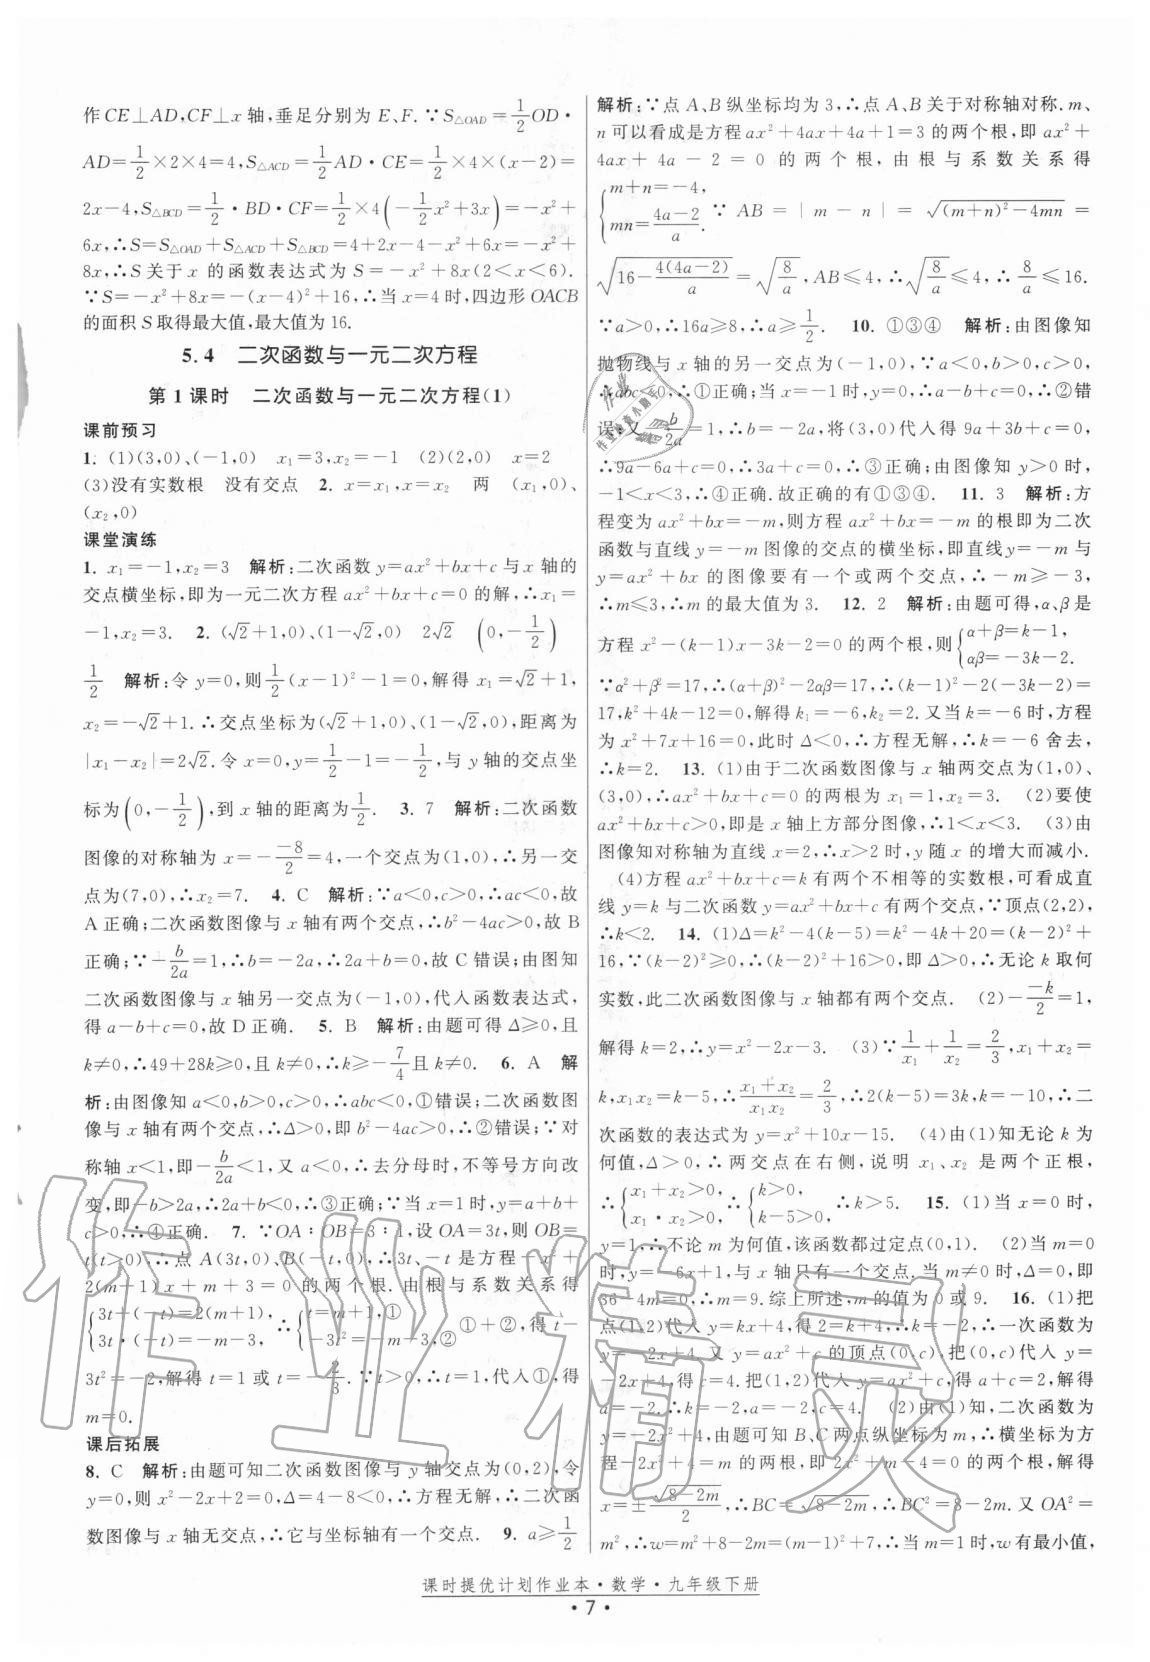 作 CE⊥AD,CF⊥x 轴,垂足分别为 E、F.∵S△OAD=1/2 OD·
AD=1/2×2×4=4,S△ACD=1/2 AD·CE=1/2×4×(x-2)=
2x-4,S△BCD=1/2·BD·CF=1/2×4(-1/2 x²+3x)=-x²+
6x,∴S=S△OAD+S△ACD+S△BCD=4+2x-4-x²+6x=-x²+
8x,∴S 关于 x 的函数表达式为 S=-x²+8x(2<x<6).
∵S=-x²+8x=-(x-4)²+16,∴当 x=4 时,四边形 OACB
的面积 S 取得最大值,最大值为 16.
5.4 二次函数与一元二次方程
第 1 课时 二次函数与一元二次方程(1)
课前预习
1. (1)(3,0)、(-1,0) x₁=3,x₂=-1 (2)(2,0) x=2
(3)没有实数根 没有交点 2. x=x₁,x=x₂ 两 (x₁,0)、
(x₂,0)
课堂演练
1. x₁=-1,x₂=3 解析:二次函数 y=ax²+bx+c 与 x 轴的
交点横坐标,即为一元二次方程 ax²+bx+c=0 的解,∴x₁=
-1,x₂=3. 2. (√2+1,0)、(1-√2,0) 2√2 (0,-1/2)
1/2 解析:令 y=0,则1/2(x-1)²-1=0,解得 x₁=√2+1,
x₂=-√2+1.∴交点坐标为(√2+1,0)、(1-√2,0),距离为
|x₁-x₂|=2√2.令 x=0,y=1/2-1=-1/2,与 y 轴的交点坐
标为(0,-1/2),到 x 轴的距离为1/2. 3. 7 解析:二次函数
图像的对称轴为 x=--8/2=4,一个交点为(1,0),∴另一交
点为(7,0),∴x₂=7. 4. C 解析:∵a<0,c>0,∴ac<0,故
A 正确;二次函数图像与 x 轴有两个交点,∴b²-4ac>0,故 B
正确;∵-b/2a=1,∴b=-2a,∴2a+b=0,故 C 错误;由图知
二次函数图像与 x 轴另一交点为(-1,0),代入函数表达式,
得 a-b+c=0,故 D 正确. 5. B 解析:由题可得 Δ≥0,且
k≠0,∴49+28k≥0,且 k≠0,∴k≥-7/4且 k≠0. 6. A 解
析:由图像知 a<0,b>0,c>0,∴abc<0,①错误;二次函数图
像与 x 轴有两个交点,∴Δ>0,即 b²-4ac>0,∴②错误;∵对
称轴 x<1,即-b/2a<1,又 a<0,∴去分母时,不等号方向改
变,即-b>2a,∴2a+b<0,∴③正确;∵当 x=1 时,y=a+b+
c>0,∴④正确. 7. ∵OA∶OB=3∶1,设 OA=3t,则 OB=
t(t>0),∴点 A(3t,0)、B(-t,0),∴3t、-t 是方程-x²+
2(m+1)x+m+3=0 的两个根.由根与系数关系得
{3t+(-t)=2(m+1), 3t·(-t)=-m-3, ∴{t=m+1,① -3t²=-m-3,② ①+②,得 t-
3t²=-2,解得 t=1 或 t=-2/3.∵t>0,∴t=1,代入①,得
m=0.
课后拓展
8. C 解析:由题可知二次函数图像与 y 轴交点为(0,2),令
y=0,则 x²-2x+2=0,Δ=4-8<0,∴方程无解,∴二次函
数图像与 x 轴无交点,∴它与坐标轴有一个交点. 9. a≥1/2
解析:∵点 A、B 纵坐标均为 3,∴点 A、B 关于对称轴对称.m、
n 可以看成是方程 ax²+4ax+4a+1=3 的两个根,即 ax²+
4ax+4a-2=0 的两个根,由根与系数关系得
{m+n=-4, mn=4a-2/a. ∵AB=|m-n|=√(m+n)²-4mn=
√16-4(4a-2)/a=√8/a,AB≤4,∴√8/a≤4,∴8/a≤16.
∵a>0,∴16a≥8,∴a≥1/2. 10. ①③④ 解析:由图像知
抛物线与 x 轴的交点为(-1,0)、(3,0),∵a<0,b>0,c>0,
∴abc<0,∴①正确;当 x=-1 时,y=a-b+c=0,∴②错
误;又-b/2a=1,∴b=-2a,将(3,0)代入得 9a+3b+c=0,
∴9a-6a+c=0,∴3a+c=0,∴③正确;由图像知 y>0 时,
-1<x<3,∴④正确.故正确的有①③④. 11. 3 解析:方
程变为 ax²+bx=-m,则方程 ax²+bx=-m 的根即为二次
函数与直线 y=-m 图像的交点的横坐标,即直线 y=-m 与
y=ax²+bx 的图像要有一个或两个交点,∴-m≥-3,
∴m≤3,∴m 的最大值为 3. 12. 2 解析:由题可得,α、β是
方程 x²-(k-1)x-3k-2=0 的两个根,则{α+β=k-1, αβ=-3k-2.
∵α²+β²=17,∴(α+β)²-2αβ=17,∴(k-1)²-2(-3k-2)=
17,k²+4k-12=0,解得 k₁=-6,k₂=2.又当 k=-6 时,方程
为 x²+7x+16=0,此时 Δ<0,∴方程无解,∴k=-6 舍去,
∴k=2. 13. (1)由于二次函数图像与 x 轴两交点为(1,0)、
(3,0),∴ax²+bx+c=0 的两根为 x₁=1,x₂=3. (2)要使
ax²+bx+c>0,即是 x 轴上方部分图像,∴1<x<3. (3)由
图像知对称轴为直线 x=2,∴x>2 时,y 随 x 的增大而减小.
(4)方程 ax²+bx+c=k 有两个不相等的实数根,可看成直
线 y=k 与二次函数 y=ax²+bx+c 有两个交点,∵顶点(2,2),
∴k<2. 14. (1)Δ=k²-4(k-5)=k²-4k+20=(k-2)²+
16,∵(k-2)²≥0,∴(k-2)²+16>0,即 Δ>0,∴无论 k 取何
实数,此二次函数图像与 x 轴都有两个交点. (2)--k/2=1,
解得 k=2,∴y=x²-2x-3. (3)∵1/x₁+1/x₂=2/3,x₁+x₂=
k,x₁x₂=k-5,∴x₁+x₂/x₁x₂=2/3,∴2(k-5)=3k,k=-10,∴二
次函数的表达式为 y=x²+10x-15. (4)由(1)知无论 k 为
何值,Δ>0,∴两交点在右侧,说明 x₁、x₂ 是两个正根,
∴{x₁+x₂>0, x₁·x₂>0, ∴{k>0, k-5>0, ∴k>5. 15. (1)当 x=0 时,
y=1,∴不论 m 为何值,该函数都过定点(0,1). (2)当 m=0
时,y=-6x+1,与 x 轴只有一个交点.当 m≠0 时,Δ=0,即
36-4m=0,∴m=9.综上所述,m 的值为 0 或 9. 16. (1)把
点(1,2)代入 y=kx+4,得 2=k+4,∴k=-2,∴一次函数为
y=-2x+4.又 y=ax²+c 的顶点(0,c),把(0,c)代入 y=
-2x+4,得 c=4.把(1,2)代入 y=ax²+c,得 a+c=2,解得
a=-2,∴k=-2,a=-2,c=4. (2)由(1)知,二次函数为
y=-2x²+4,由题可知 B、C 两点纵坐标为 m,∴横坐标为方
程-2x²+4=m 的两根,即-2x²-m+4=0 的两个根,解得
x=±√8-2m/2,∴BC=√8-2m,∴BC²=8-2m.又 OA²=
m²,∴w=m²+8-2m=(m-1)²+7,∴当 m=1 时,w 有最小值,
课时提优计划作业本·数学·九年级下册
·7·
作业精灵